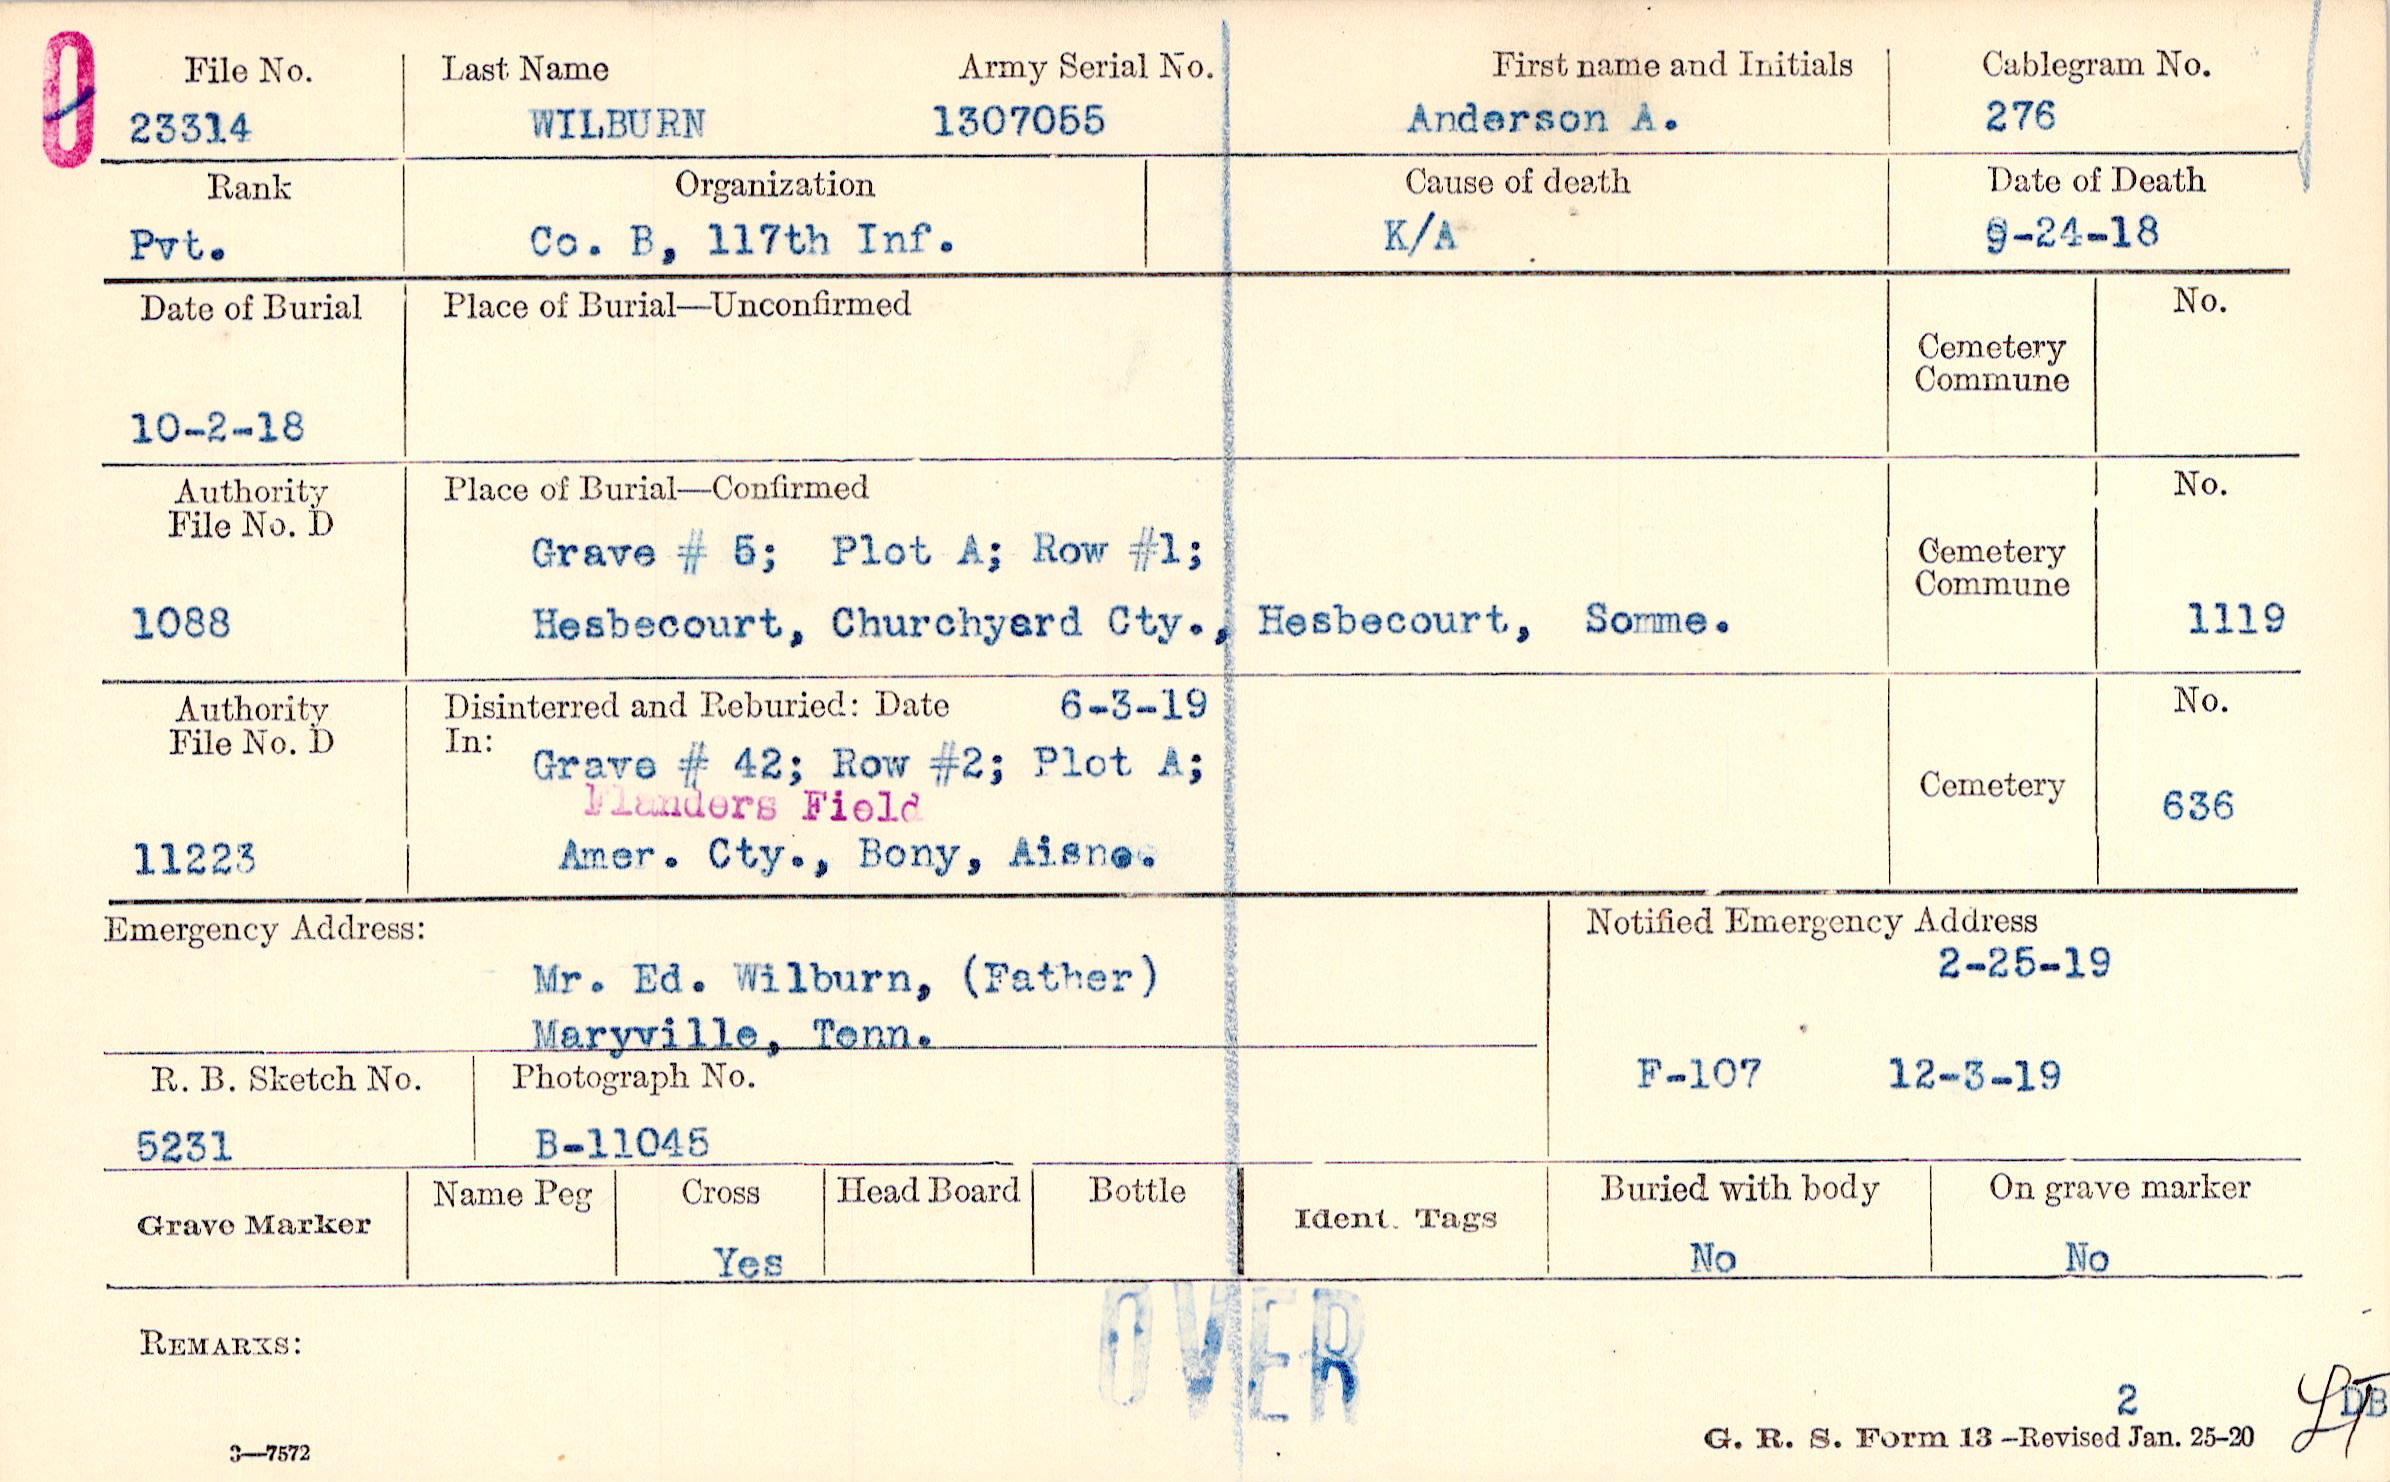 File No. Last Name Army Serial No. First name and Initials Cablegram No.
23314 WILBURN 1307055 Anderson A. 276
Rank Organization Cause of death Date of Death
Pvt. Co. B, 117th Inf. K/A 9-24-18
Date of Burial Place of Burial—Unconfirmed No.
Cemetery
Commune
10-2-18
Authority Place of Burial—Confirmed No.
File No. D
Grave # 5; Plot A; Row #1; Cemetery
Commune
1088 Hesbecourt, Churchyard Cty., Hesbecourt, Somme. 1119
Authority Disinterred and Reburied: Date 6-3-19 No.
File No. D In:
Grave # 42; Row #2; Plot A;
Flanders Field Cemetery 636
11223 Amer. Cty., Bony, Aisne.
Emergency Address: Notified Emergency Address
2-25-19
Mr. Ed. Wilburn, (Father)
Maryville, Tenn.
R. B. Sketch No. Photograph No. F-107 12-3-19
5231 B-11045
Grave Marker Name Peg Cross Head Board Bottle Ident. Tags Buried with body On grave marker
Yes No No
OVER
REMARKS:
2 DB
G. R. S. Form 13—Revised Jan. 25-20
3—7572